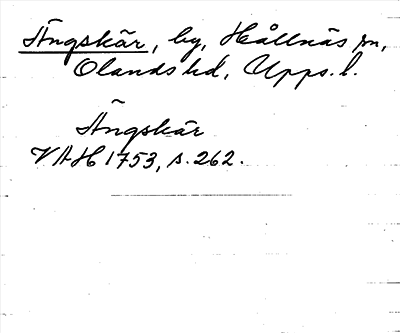 Ängskär, by, Hållnäs sn,
Olands hd, Upps. l.
Ängskär
VAH 1753, s. 262.